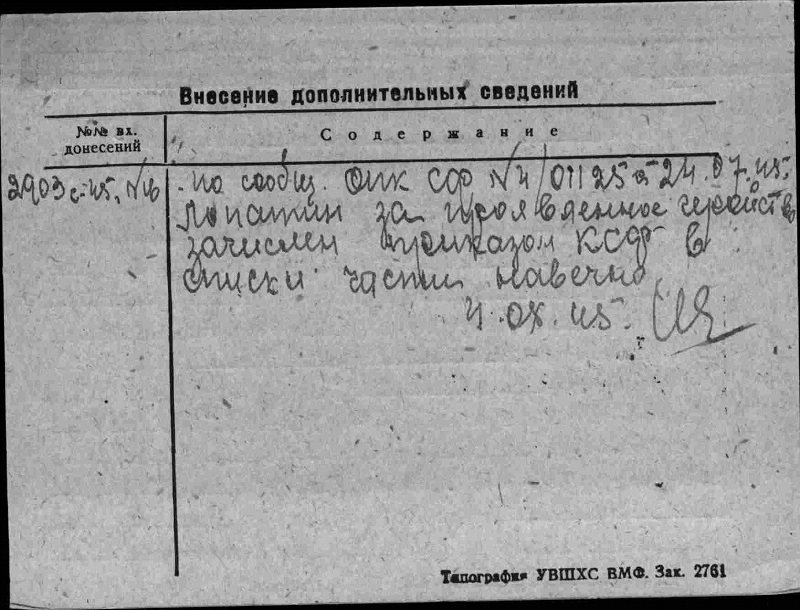 Внесение дополнительных сведений
№№ вх.
донесений
Содержание
2903с-45.
по сообщ. ОПК СФ N 4/01125 от 24.07.45.
Лопатин за проявленное геройство
зачислен приказом КСФ в
списки части навечно
4.08.45.
Типография УВШХС ВМФ. Зак. 2761